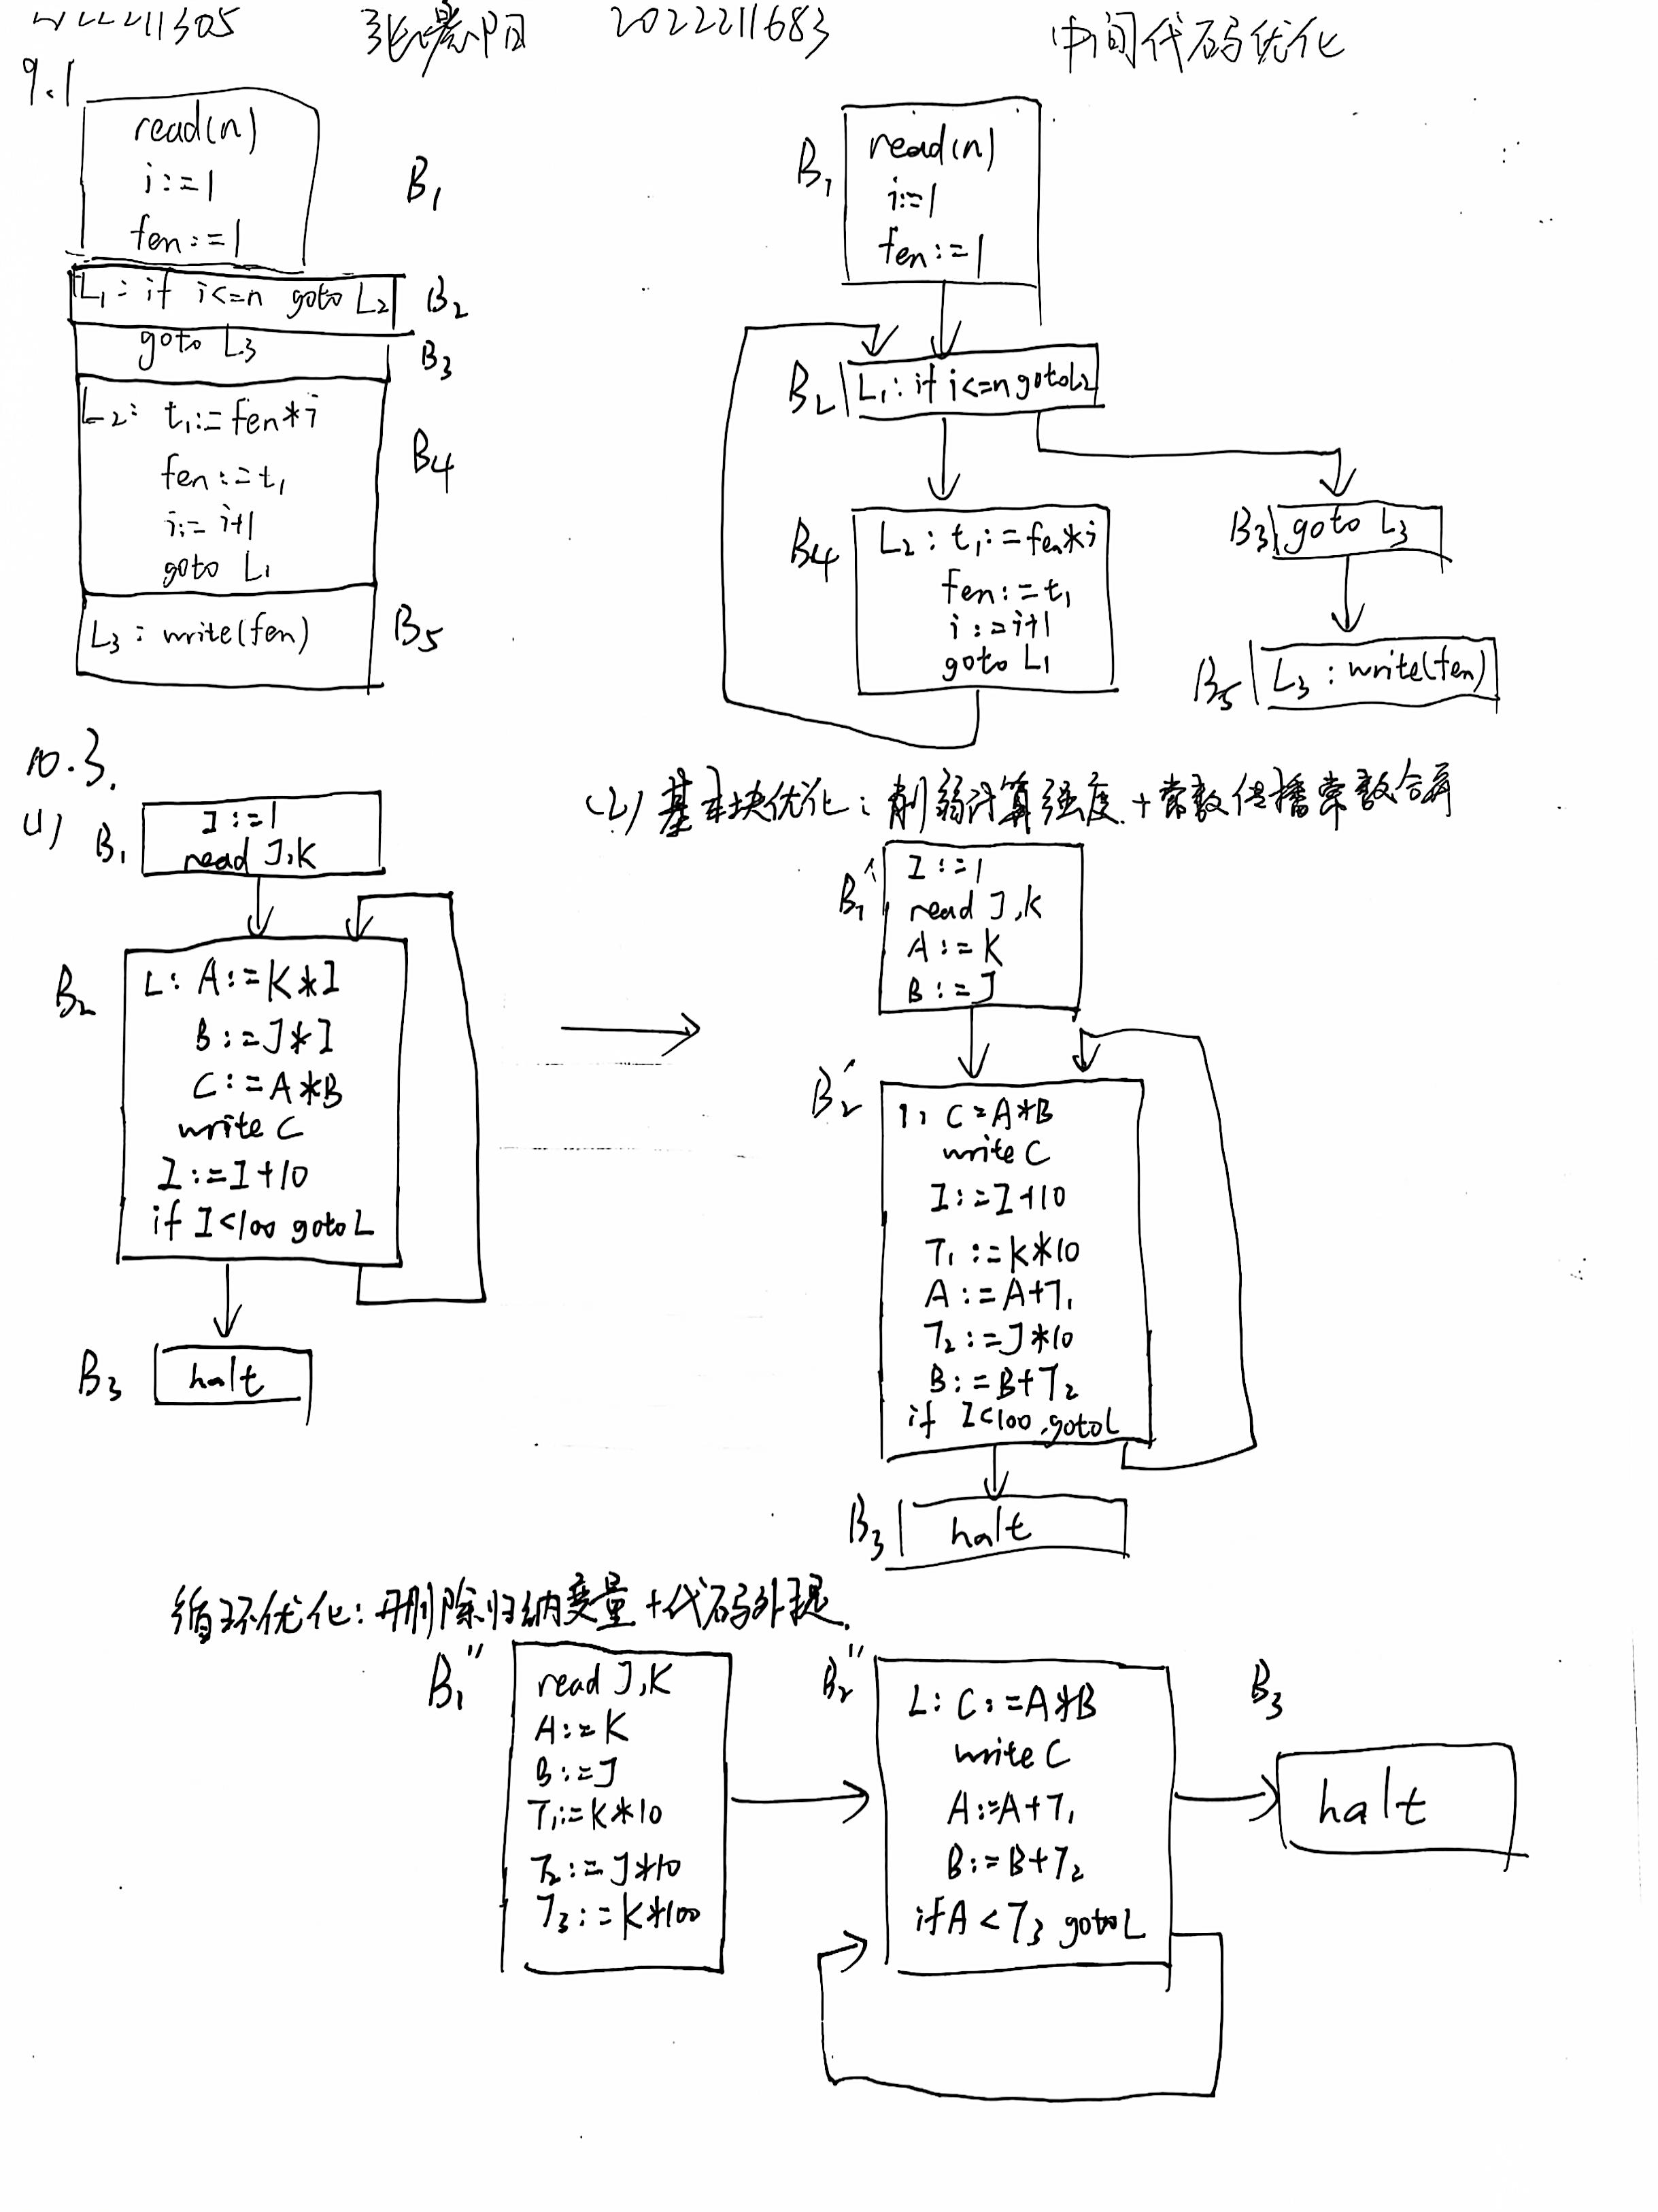 张 阳 2022211683 中间代码优化
9.1
read(n)
i:=1
fen:=1
B1
L1: if i<=n goto L2 B2
goto L3 B3
L2: t1:=fen*i
fen:=t1
i:=i+1
goto L1
B4
L3: write(fen) B5
B1
read(n)
i:=1
fen:=1
B2 L1: if i<=n goto L2
B4
L2: t1:=fen*i
fen:=t1
i:=i+1
goto L1
B3 goto L3
B5 L3: write(fen)
10.3.
(1)
B1
I:=1
read J,K
B2
L: A:=K*I
B:=J*I
C:=A*B
write C
I:=I+10
if I<100 goto L
B3 halt
(2) 基本块优化: 削弱计算强度+常数传播常数合并
B1'
I:=1
read J,K
A:=K
B:=J
B2'
C=A*B
write C
I:=I+10
T1:=K*10
A:=A+T1
T2:=J*10
B:=B+T2
if I<100 goto L
B3 halt
循环优化: 删除归纳变量+代码外提.
B1''
read J,K
A:=K
B:=J
T1:=K*10
T2:=J*10
T3:=K*100
B2''
L: C:=A*B
write C
A:=A+T1
B:=B+T2
if A<T3 goto L
B3
halt